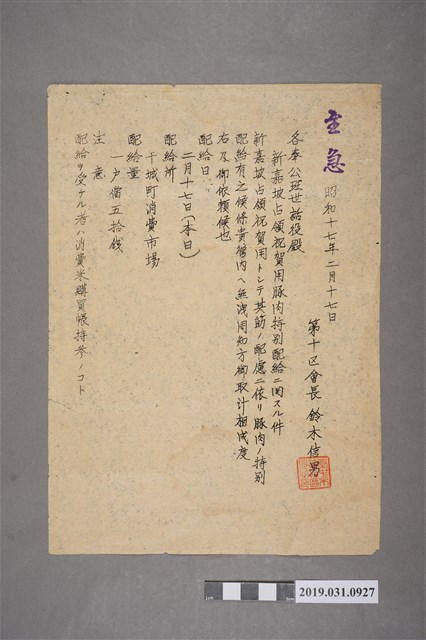 至急
昭和十七年二月十七日
第十区會長 鈴木信男
各奉公班世話役殿
新嘉坡占領祝賀用豚肉特別配給ニ関スル件
新嘉坡占領祝賀用トシテ其筋ノ配慮ニ依リ豚肉ノ特別
配給有之候條貴管内ヘ無洩周知方御取計相成度
右及御依頼候也
配給日
二月十七日(本日)
配給所
干城町消費市場
配給量
一戸當五拾銭
注意
配給ヲ受ケル者ハ消費米購買帳持参ノコト
2019.031.0927